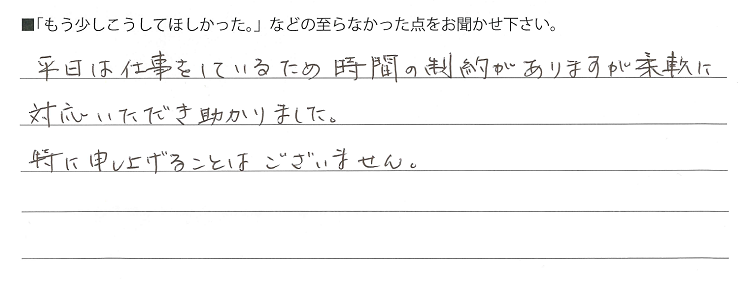 ■「もう少しこうしてほしかった。」などの至らなかった点をお聞かせ下さい。
平日は仕事をしているため時間の制約がありますが柔軟に
対応いただき助かりました。
特に申し上げることはございません。